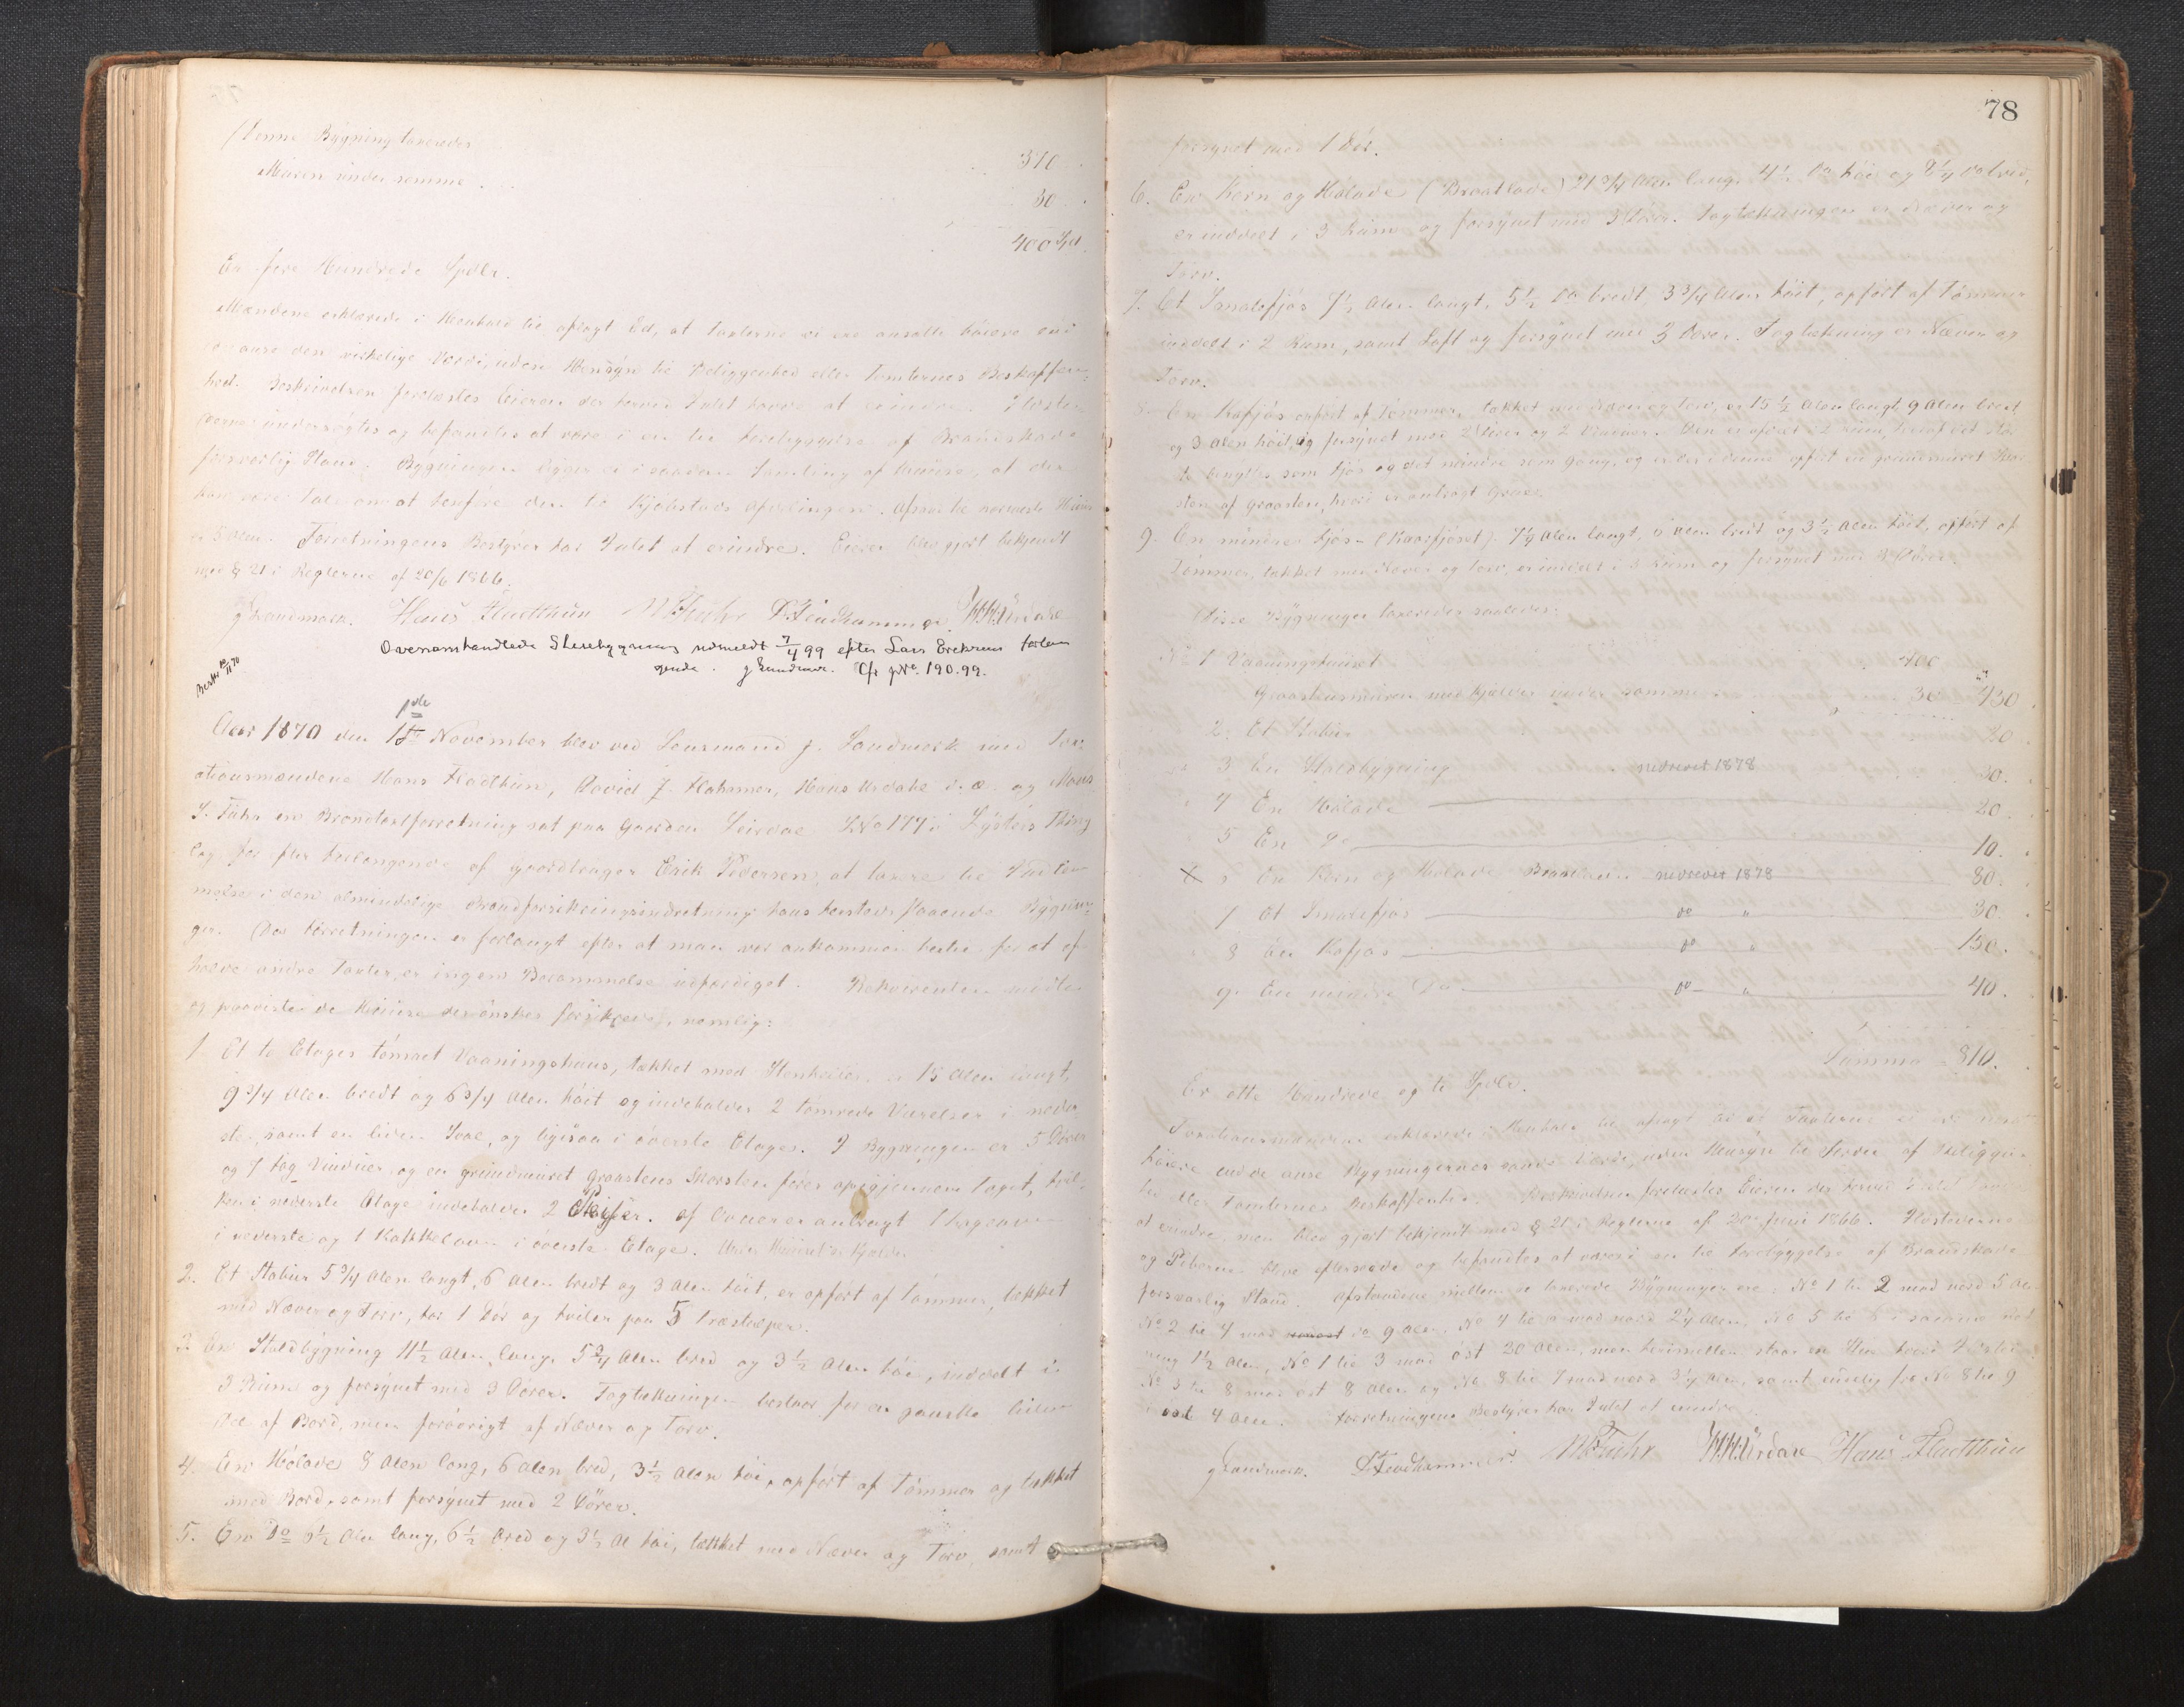 Denne Bygning taxeredes 370.
Muren under samme 30.
400 Spd
Er fire Hundrede Spdlr.
Mændene erklærede i Henhold til aflagt Ed, at Taxterne ei ere ansatte höiere end
de anse den virkelige Værdi, uden Hensyn til Beliggenhed eller Tomternes Beskaffen-
hed. Beskrivelsen forelæstes Eieren der herved Intet havde at erindre. Ildste-
derne undersögtes og befandtes at være i en til Forebyggelse af Brandskade
forsvarlig Stand. Bygningen ligger ei i saadan Samling af Huuse, at der
kan være Tale om at henföre den til Kjöbstads Afdelingen. Afstd til nærmeste Huus
er 5 Alen. Forretningens Bestyrer har Intet at erindre. Eieren blev gjort bekjendt
med § 21 i Reglerne af 20/6 1866.
J Landmark. Hans Fladthun M Fuhr D Flahammer. H.H. Urdahl
Ovenomhandlede Stuebygning udmeldt 7/4 99 efter Lars Eriksens forlan
gende. J Landmark. Cfr jNo. 190.99.
Aar 1870 den 1ste November blev ved Lensmand J. Landmark med Tax-
ationsmændene Hans Fladthun, David J. Flahamer, Hans Urdahl d.æ. og Mons
J. Fuhr en Brandtaxtforretning sat paa Gaarden Leirdal LNo 177 i Lysters Thing
lag for efter Forlangende af Gaardbruger Erik Pedersen, at taxere til Indlem
melse i den almindelige Brandforsikringsindretning hans hersteds staaende Bygnin-
ger. Da Forretningen er forlangt efter at man var ankommen hertil for at af-
holde andre Taxter, er ingen Berammelse udfærdiget. Rekvirenten mödte
og paaviste de Huuse der önskes forsikrede, nemlig:
1 Et to Etages tömret Vaaningshuus, tækket med Stenheller er 15 Alen langt,
9 3/4 Alen bredt og 6 3/4 Alen höit og indeholder 2 tömrede Værelser i neder-
ste, samt en liden Sval, og ligesaa i överste Etage. I Bygningen er 5 Dörer
og 7 fag Vinduer og en grundmuret Graastens Skorsten förer op igjennem Taget, hvil-
ken i nederste Etage indeholder 2 Peiser. af Ovne er anbragt 1
i nederste og 1 Kakkelovn i överste Etage. Under Huuset er Kjelder
2. Et Stabur 5 3/4 Alen langt, 6 Alen bredt og 3 Alen höit, er opfört af Tömmer, tækket
med Næver og Torv, har 1 Dör og hviler paa 5 Træstolper.
3. En Staldbygning 11 1/2 Alen lang, 5 3/4 Alen bred og 3 1/2 Alen höi, inddelt i
3 Rum og forsynet med 3 Dörer. Tagtækningen bestaar for en ganske liden
Del af Bord, men forövrigt af Næver og Torv.
4. En Hölade 8 Alen lang, 6 Alen bred, 3 1/2 Alen höi, opfört af Tömmer og tækket
med Bord, samt forsynet med 2 Dörer.
5. En Do 6 1/2 Alen lang, 6 1/2 bred og 3 1/2 Al höi, tækket med Næver og Torv, samt
78
forsynet med 1 Dör.
6. En Korn og Hölade (Braatlade) 21 3/4 Alen lang, 4 1/2 Do höi og 8 1/4 Do bred,
er inddelt i 3 Rum og forsynet med 3 Dörer. Tagtækningen er Næver og
Torv.
7. Et Smalefjös 7 1/2 Alen langt, 5 1/2 Do bredt, 3 3/4 Alen höit, opfört af Tömmer
inddelt i 2 Rum, samt Loft og forsynet med 3 Dörer. Tagtækning er Næver og
Torv.
8. En Kofjös opfört af Tömmer, tækket med Næver og Torv, er 15 1/2 Alen langt, 9 Alen bred
og 3 Alen höit, og forsynet med 2 Dörer og 2 Vinduer. Den er afdelt i 2 Rum, hvoraf det stör-
ste benyttes som Fjös og det mindre som Gang, og er der i denne opfört en grundmuret Skor
sten af Graasten, hvori er anbragt Grue.
9. En mindre Fjös (Kaarfjöset) 7 1/4 Alen langt, 6 Alen bredt og 3 1/2 Alen höit, opfört af
Tömmer, tækket med Næver og Torv, er inddelt i 3 Rum og forsynet med 3 Dörer.
Disse Bygninger taxeredes saaledes:
No 1 Vaaningshuuset 400
Graastensmuren med Kjelder under samme 30 430
2. Et Stabur 20
3 En Staldbygning nedrevet 1878 30.
4 En Hölade 20.
5 En Do 10.
X En Korn og Hölade Braatladen nedrevet 1878 80.
7 Et Smalefjös do " 30.
8 En Kofjös do " 150.
9. En mindre Do do " 40.
Summa 810.
Er otte Hundrede og ti Spdlr.
Taxationsmændene erklærede i Henhold til aflagt Ed at Taxterne ei ere ansat
höiere end de anse Bygningernes sande Værdi, uden Hensyn til Fordel af Beliggen-
hed eller Tomternes Beskaffenhed. Beskrivelsen forelæstes Eieren der herved Intet havde
at erindre, men blev gjort bekjendt med § 21 i Reglerne af 20de Juni 1866. Ildstederne
og Piberne bleve efterseede og befandtes at være i en til Forebyggelse af Brandskade
forsvarlig Stand. Afstandene mellem de taxerede Bygninger ere: No 1 til 2 mod nord 5 Alen
No 2 til 4 mod do 9 Alen, No 4 til 5 mod nord 2 1/4 Alen, No 5 til 6 i samme Ret-
ning 1 1/2 Alen, No 1 til 3 mod öst 20 Alen, men herimellem staar en
No 3 til 8 mod öst 8 Alen og No 8 til 7 mod nord 3 1/4 Alen, samt endelig fra No 8 til 9
i öst 4 Alen. Forretningens Bestyrer har Intet at erindre.
J Landmark. D Flahammer. M Fuhr H.H. Urdal Hans Fladthun